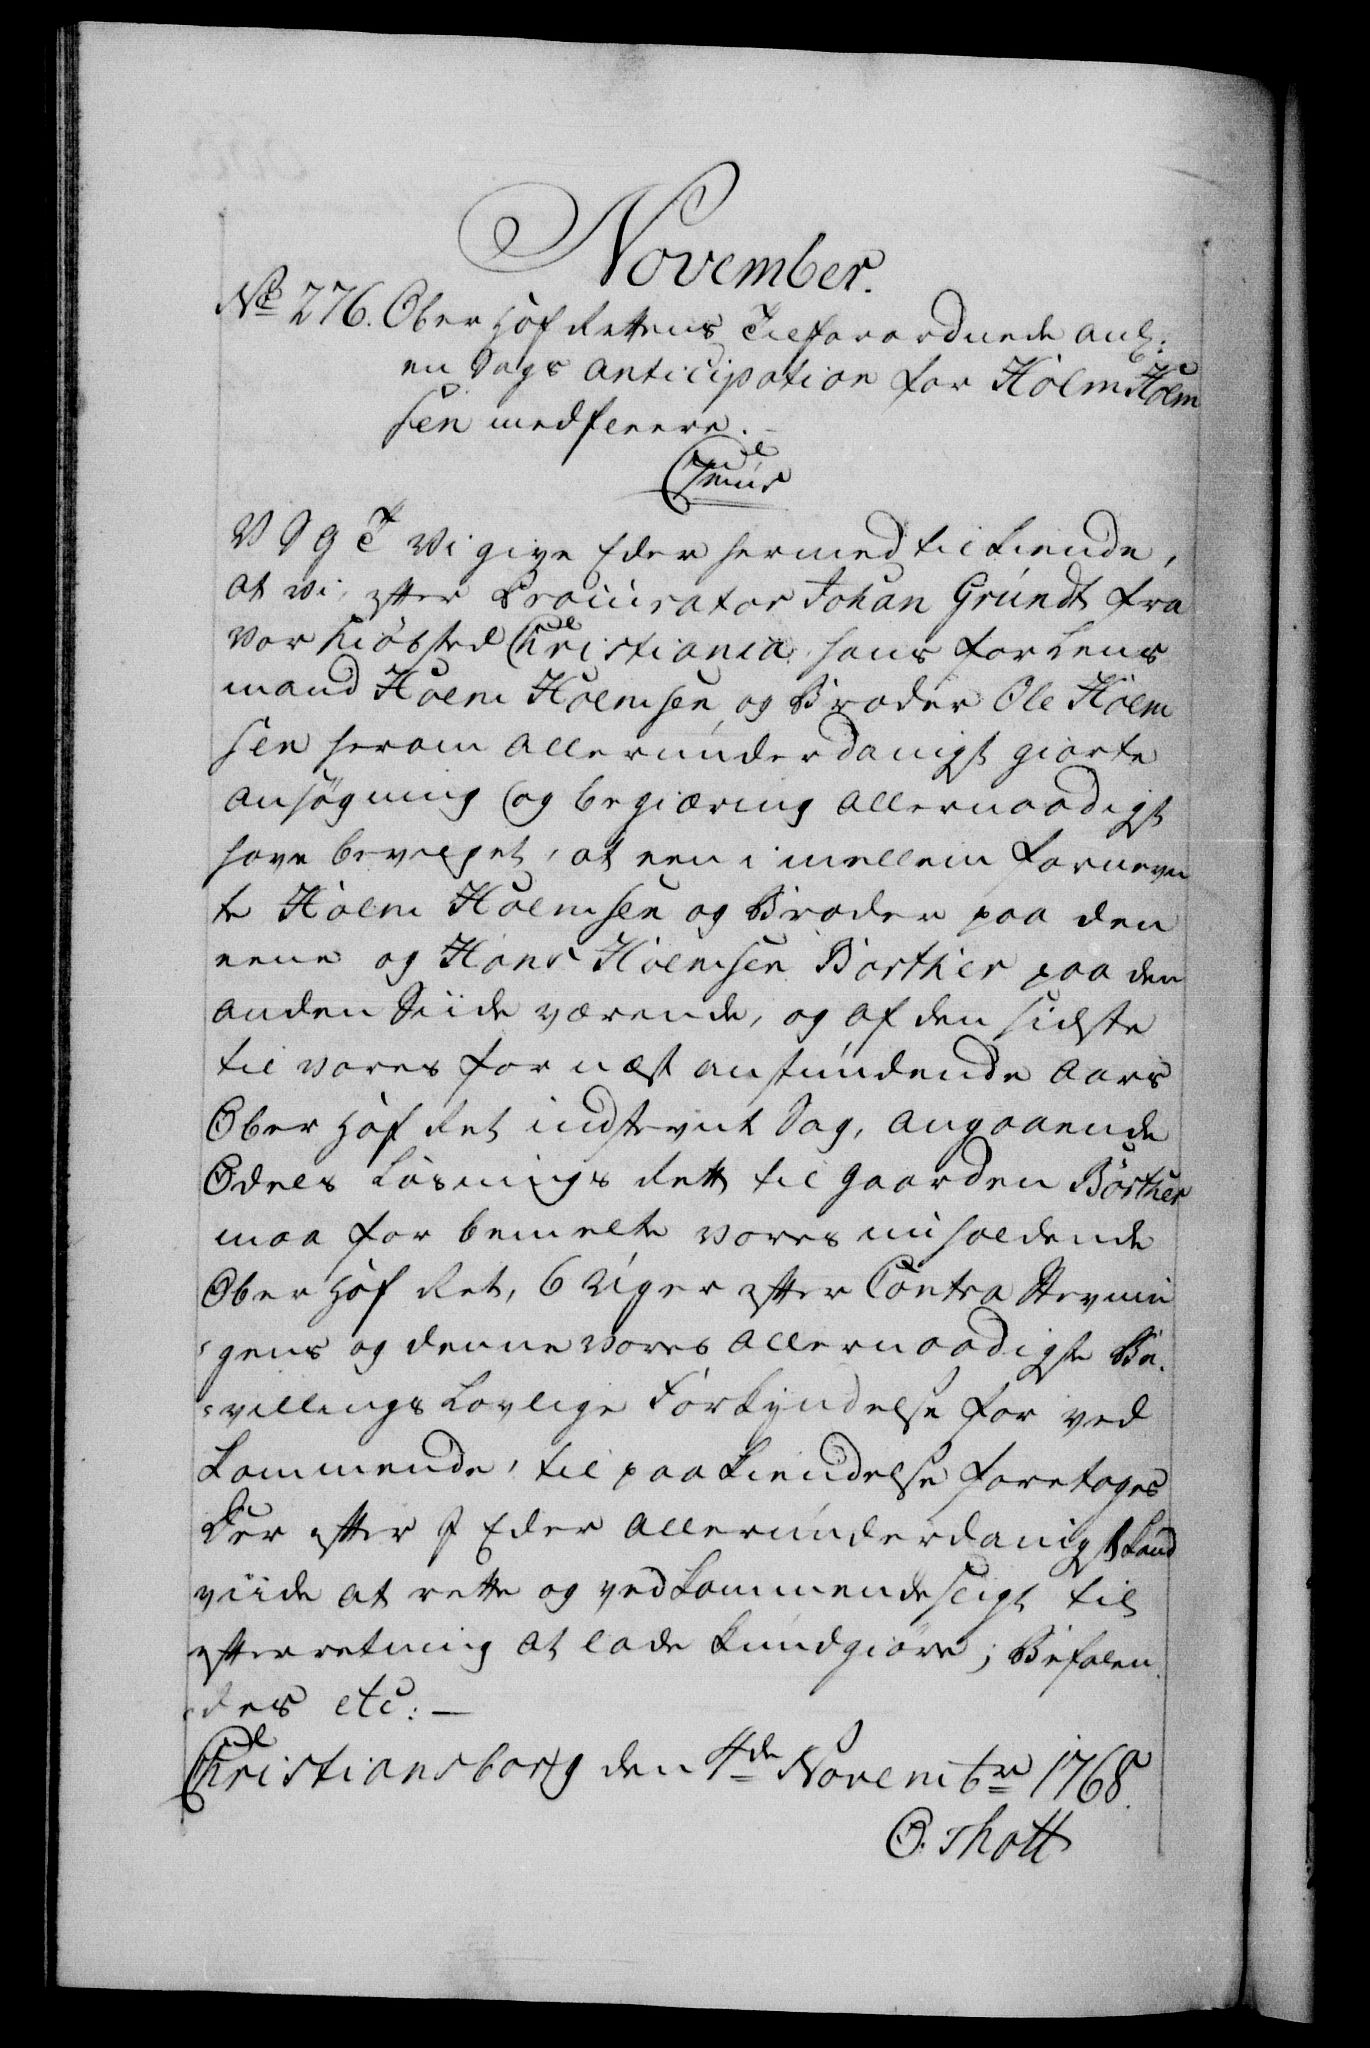 November.
No 276. Ober Hof Rettens Tilforordnede anl:
en Sags anticipation for Holm Holm
sen med fleere.
C7mus
V S G T Vi give Eder hermed tilkiende,
at vi, efter Procurator Johan Grundt fra
vor Kiöbsted Christiania hans for Lens
mand Holm Holmsen og Broder Ole Holm
sen herom allerunderdanigst giorte
ansøgning og begiæring allernaadigst
have bevilget, at een imellem fornevn
te Holm Holmsen og Broder paa den
eene og Hans Holmsen Börther paa den
anden Siide værende, og af den sidste
til vores for næst anstundende Aars
Ober Hof Ret indstevnt Sag, angaaende
Odels Løsnings Rett til gaarden Börther
maa for bemelte vores nu holdende
Ober Hof Ret, 6 Uger efter Contra Stevnin
gens og denne vores allernaadigste Be-
villings Lovlige Forkyndelse for ved
kommende, til paakiendelse foretages
Der efter I Eder allerunderdanigst haver
viide at rette og vedkommende sligt til
efterretning at lade kundgiöre; Befalen
des etc: —
Christiansborg den 4de Novembr 1768.
O. Thott